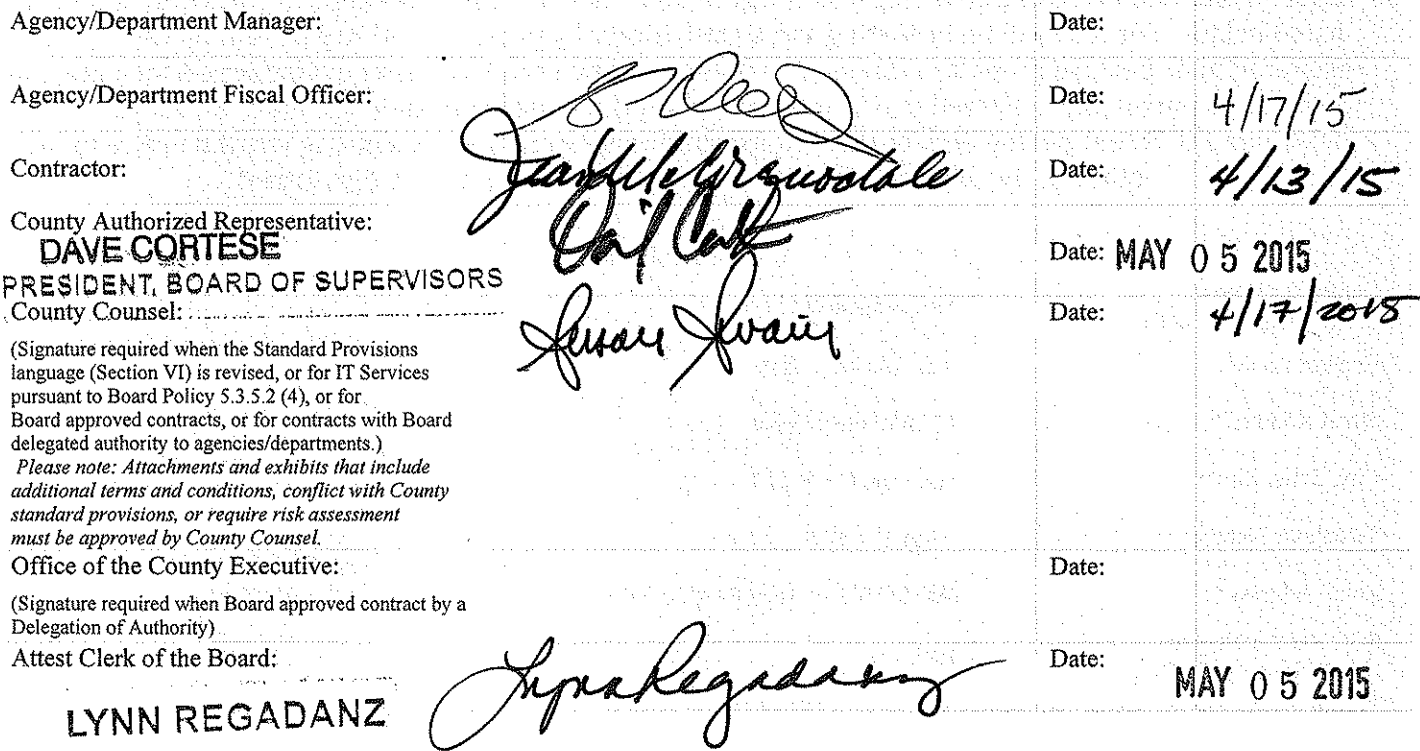 Agency/Department Manager: Date:
Agency/Department Fiscal Officer: Date: 4/17/15
Contractor: Date: 4/13/15
County Authorized Representative:
DAVE CORTESE Date: MAY 05 2015
PRESIDENT, BOARD OF SUPERVISORS
County Counsel: Susan Swain Date: 4/17/2015
(Signature required when the Standard Provisions
language (Section VI) is revised, or for IT Services
pursuant to Board Policy 5.3.5.2 (4), or for
Board approved contracts, or for contracts with Board
delegated authority to agencies/departments.)
Please note: Attachments and exhibits that include
additional terms and conditions, conflict with County
standard provisions, or require risk assessment
must be approved by County Counsel.
Office of the County Executive: Date:
(Signature required when Board approved contract by a
Delegation of Authority)
Attest Clerk of the Board: Lynn Regadanz Date: MAY 05 2015
LYNN REGADANZ